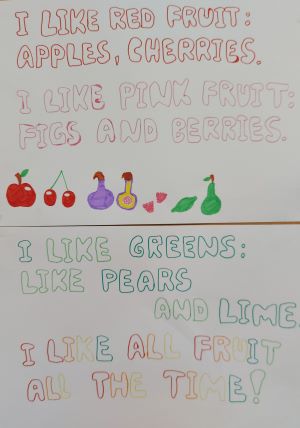 I LIKE RED FRUIT:
APPLES, CHERRIES.
I LIKE PINK FRUIT:
FIGS AND BERRIES.
I LIKE GREENS:
LIKE PEARS
AND LIME
I LIKE ALL FRUIT
ALL THE TIME!